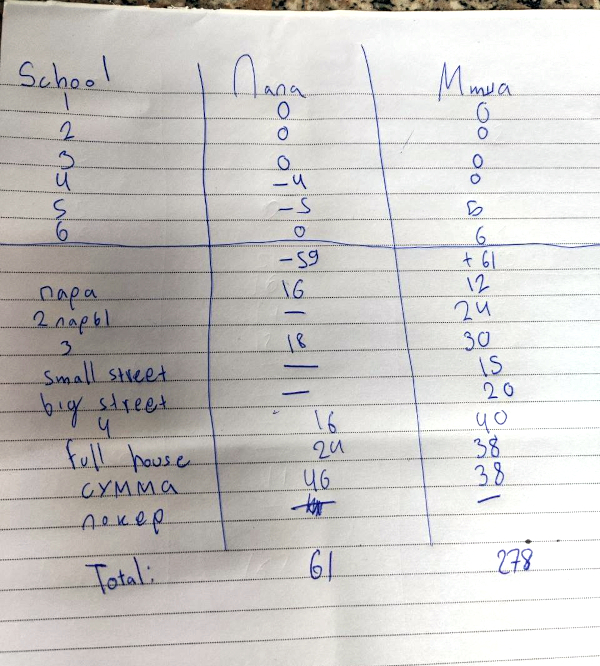 School Папа Миша
1 0 0
2 0 0
3 0 0
4 -4 0
5 -5 5
6 0 6
-59 +61
пара 16 12
2 пары — 24
3 18 30
small street — 15
big street — 20
4 16 40
full house 24 38
сумма 46 38
покер — —
Total: 61 278